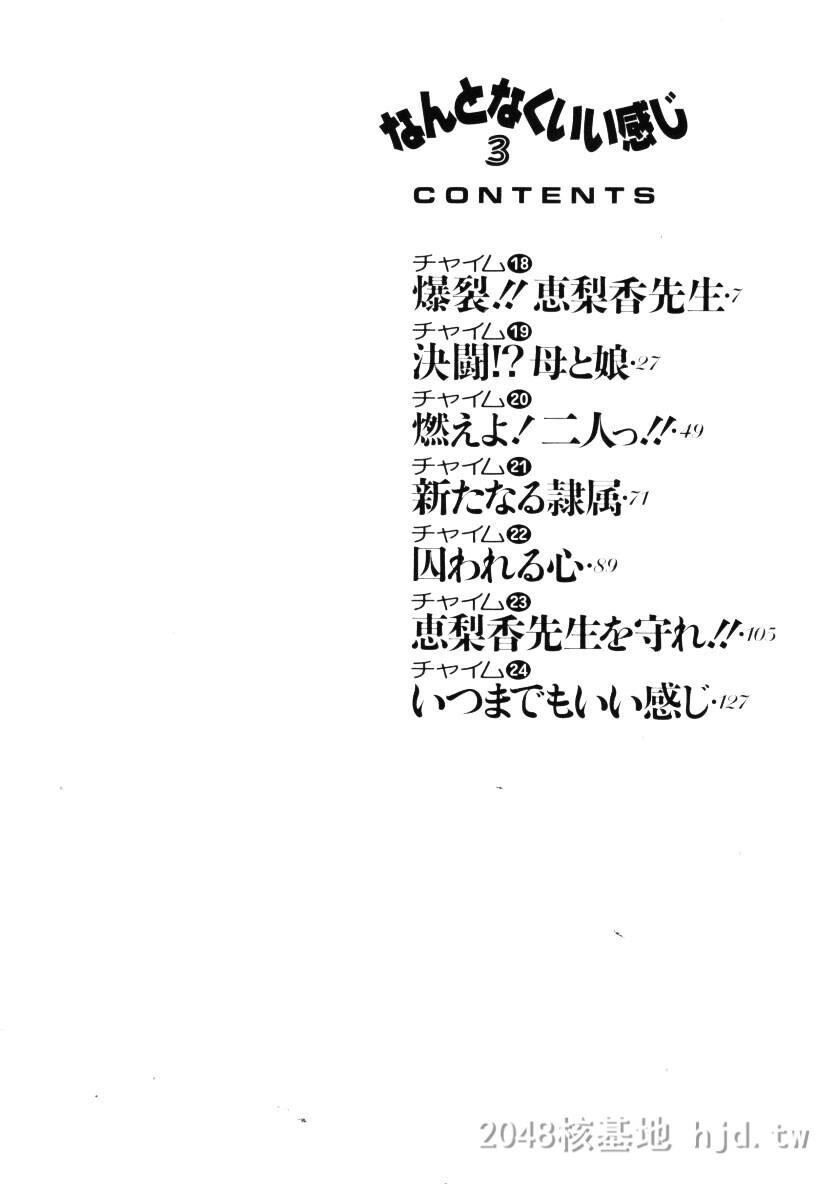 なんとなくいい感じ
3
CONTENTS
チャイム⑱
爆裂!! 恵梨香先生・7
チャイム⑲
決闘!? 母と娘・27
チャイム⑳
燃えよ! 二人っ!!・49
チャイム㉑
新たなる隷属・71
チャイム㉒
囚われる心・89
チャイム㉓
恵梨香先生を守れ!!・105
チャイム㉔
いつまでもいい感じ・127
2048核基地 hjd.tw